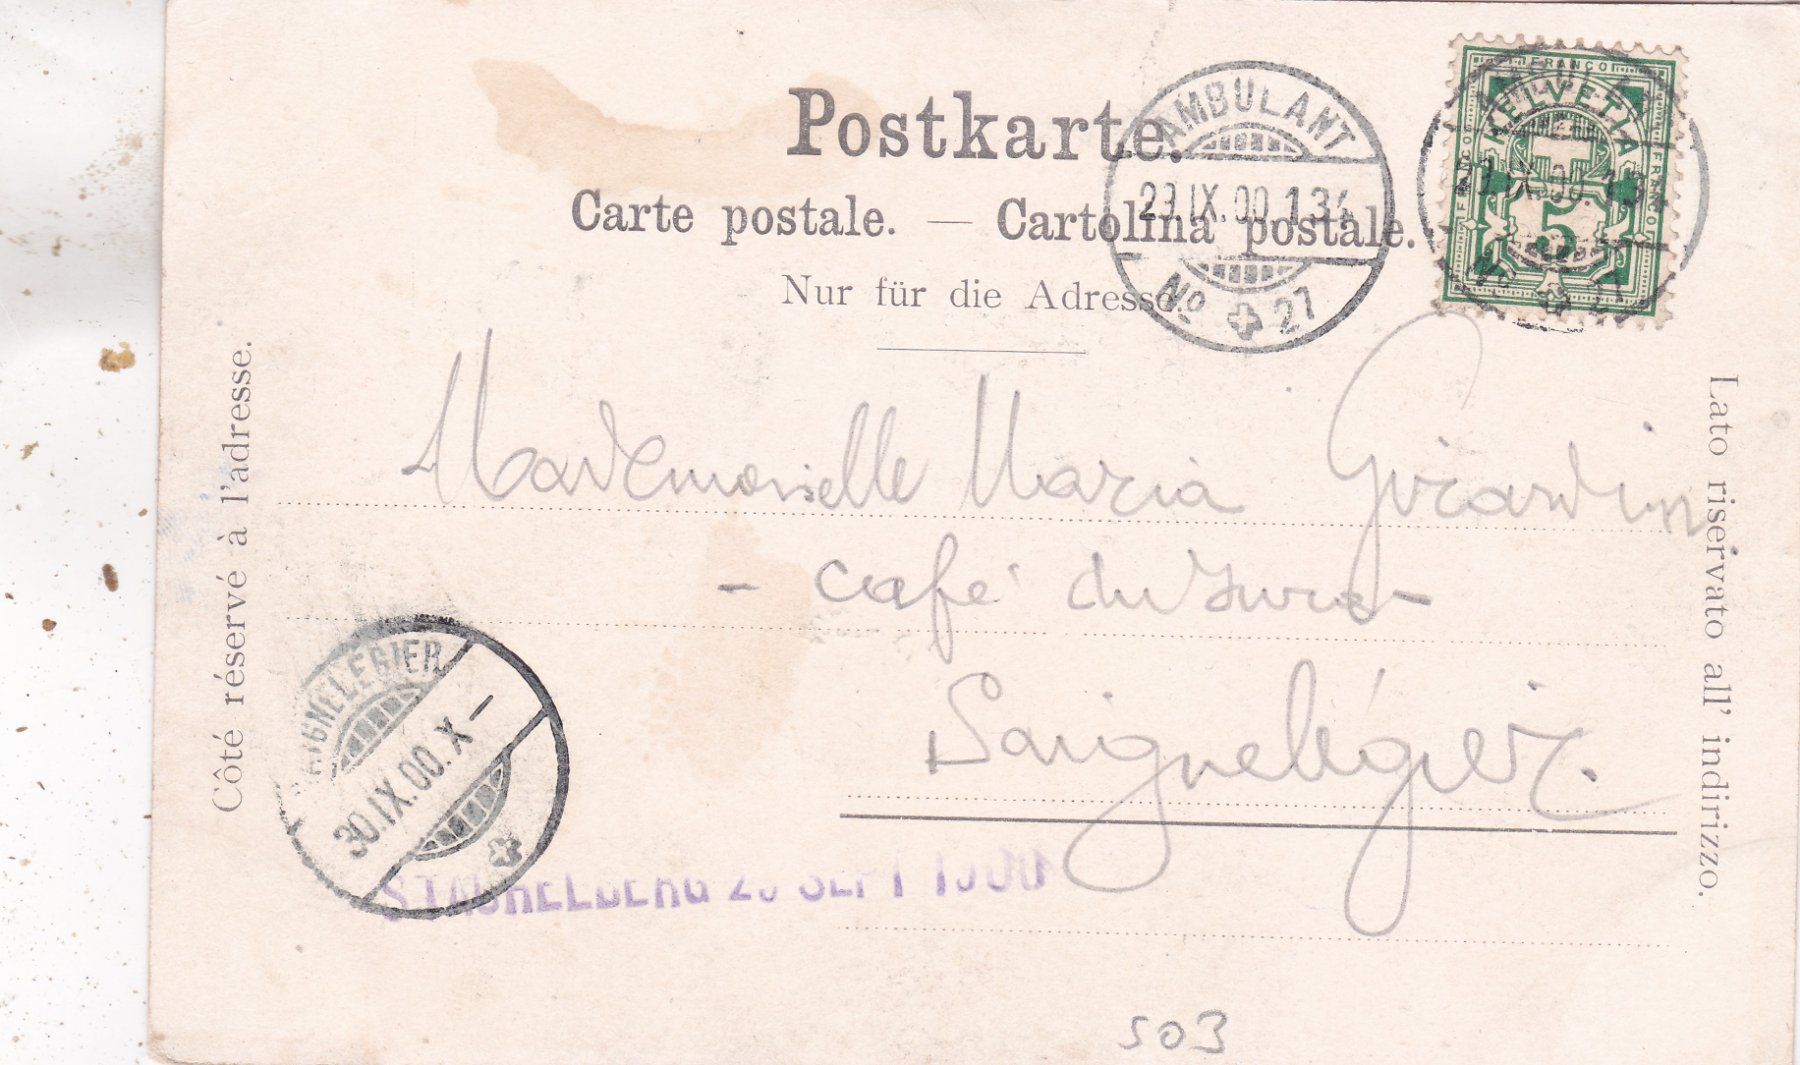 Postkarte.
Carte postale. — Cartolina postale.
Nur für die Adresse.
AMBULANT
29.IX.00.134
No 27
FRANCO
HELVETIA
FRANCO
FRANCO
5
Mademoiselle Maria Girardin
- café du Jura -
Saignelégier.
Côté réservé à l'adresse.
Lato riservato all' indirizzo.
SAIGNELÉGIER
30.IX.00.X -
STACHELBERG 29 SEPT 1900
503